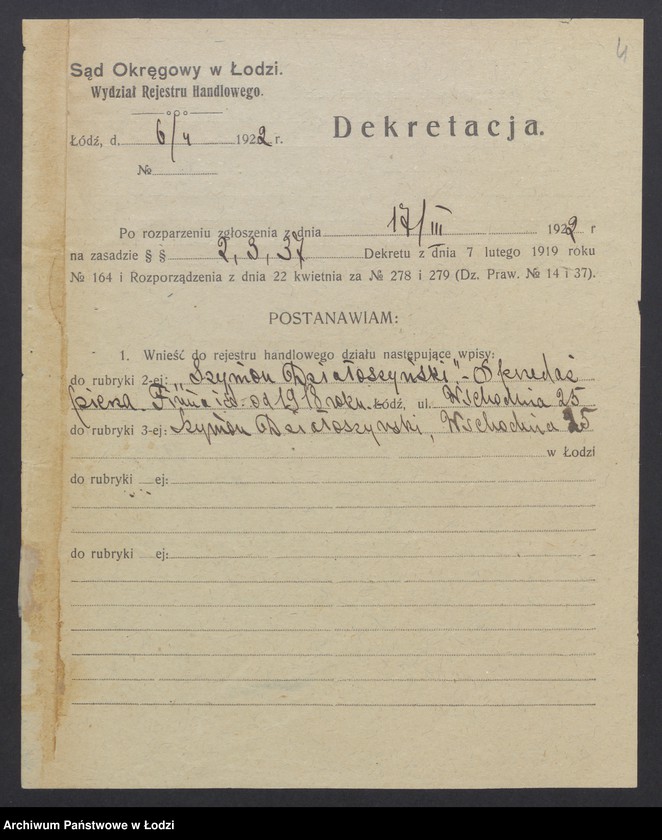 4
Sąd Okręgowy w Łodzi.
Wydział Rejestru Handlowego.
Łódź, d. 6/4 1922 r.
Dekretacja.
№
Po rozparzeniu zgłoszenia z dnia 17/III 1922 r
na zasadzie § § 2, 3, 37 Dekretu z dnia 7 lutego 1919 roku
№ 164 i Rozporządzenia z dnia 22 kwietnia za № 278 i 279 (Dz. Praw. № 14 i 37).
POSTANAWIAM:
1. Wnieść do rejestru handlowego działu następujące wpisy:
do rubryki 2-ej: „Szymon Działoszyński".- Sprzedaż
pierza. Firma istn. od 1918 roku. Łódź, ul. Wschodnia 25
do rubryki 3-ej: Szymon Działoszyński, Wschodnia 25
w Łodzi
do rubryki ej:
do rubryki ej:
Archiwum Państwowe w Łodzi